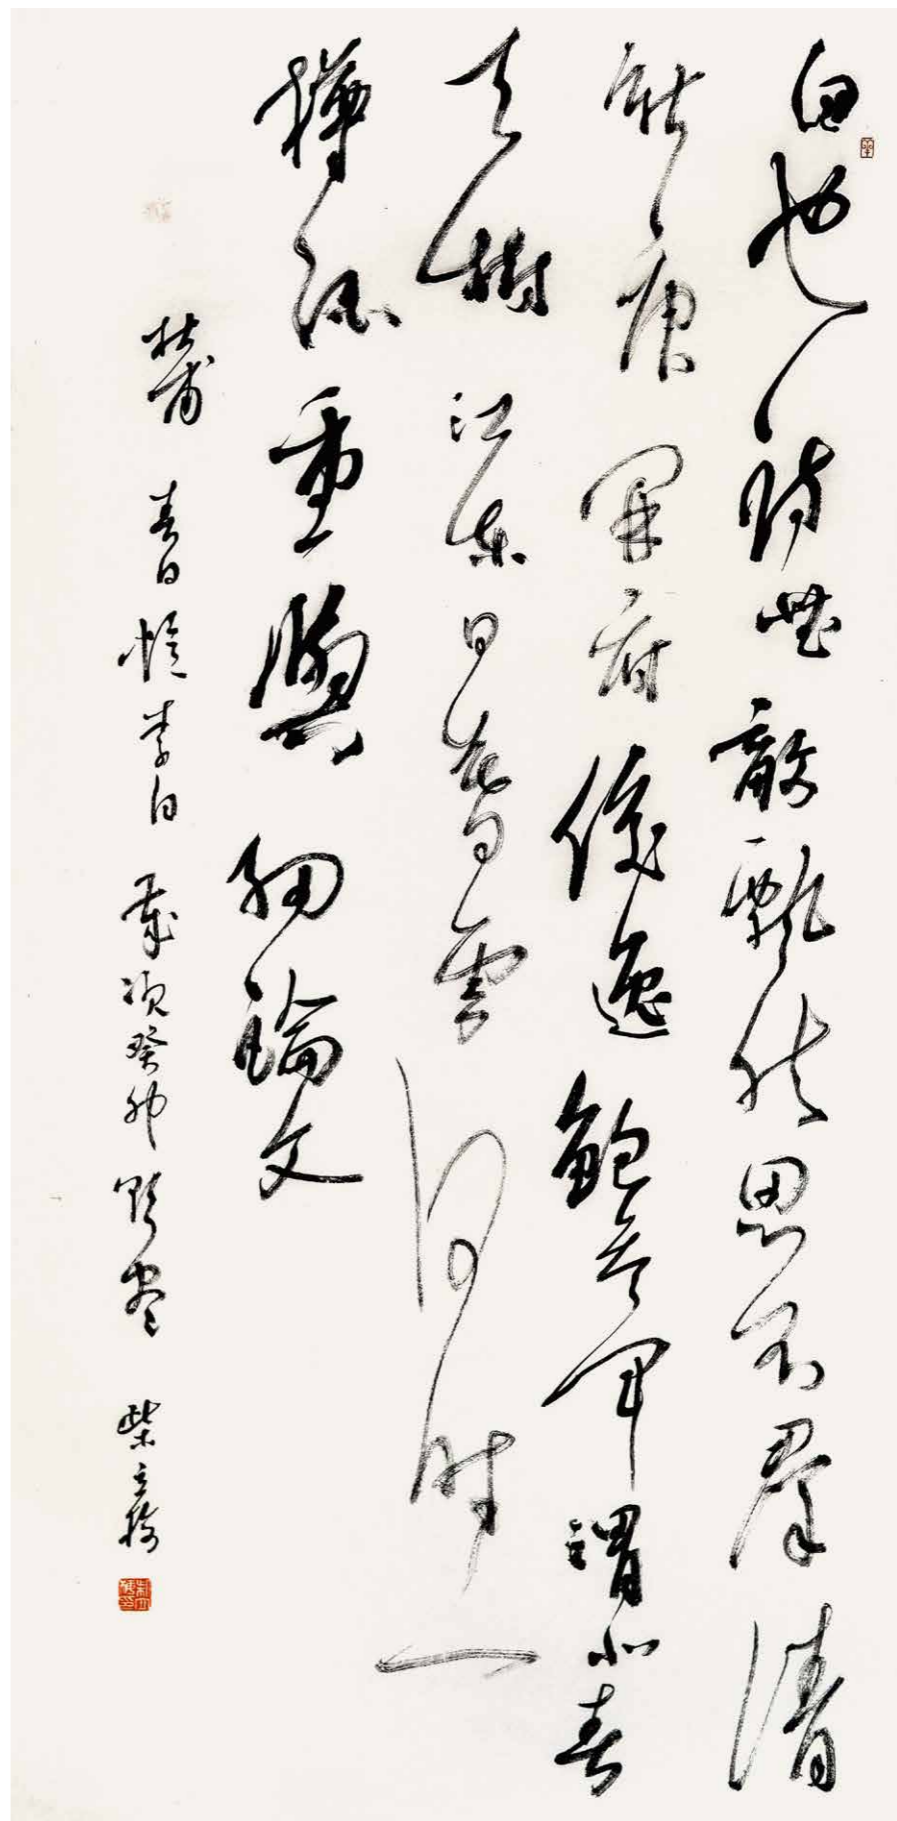 白也詩無敵飄然思不羣清
新庾開府俊逸鮑參軍渭北春
天樹江東日暮雲何時一
樽酒重與細論文
杜甫春日憶李白歲次癸卯 柴立梅